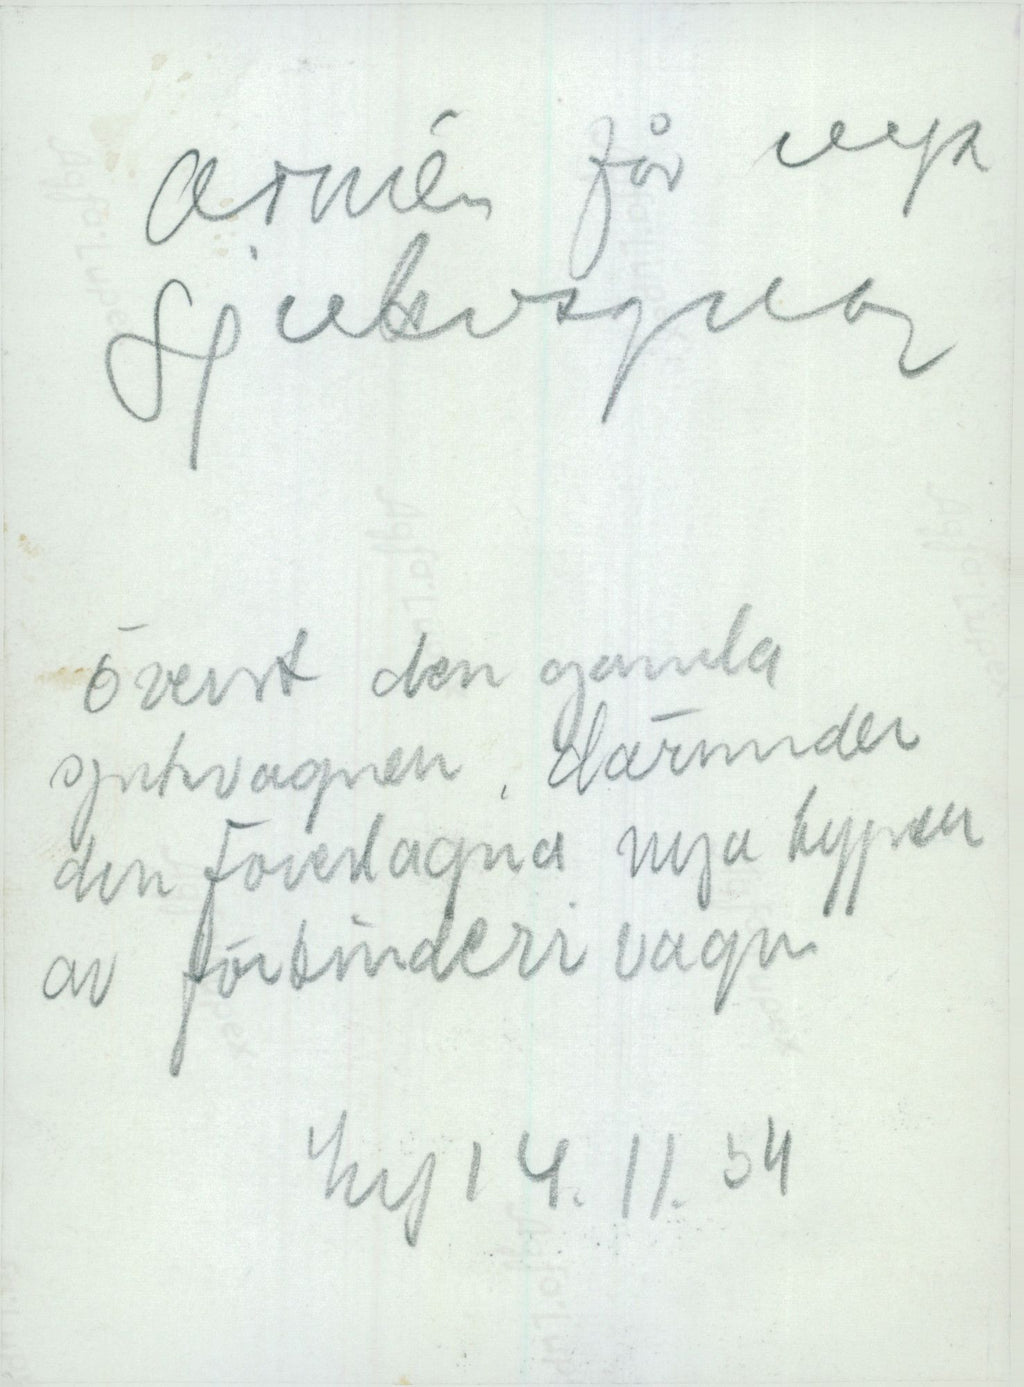 Armén får nya
Sjukvagnar
Överst den gamla
sjukvagnen, därunder
den föreslagna nya typen
av förbinderivagn
14.11.54
Agfa-Lupex